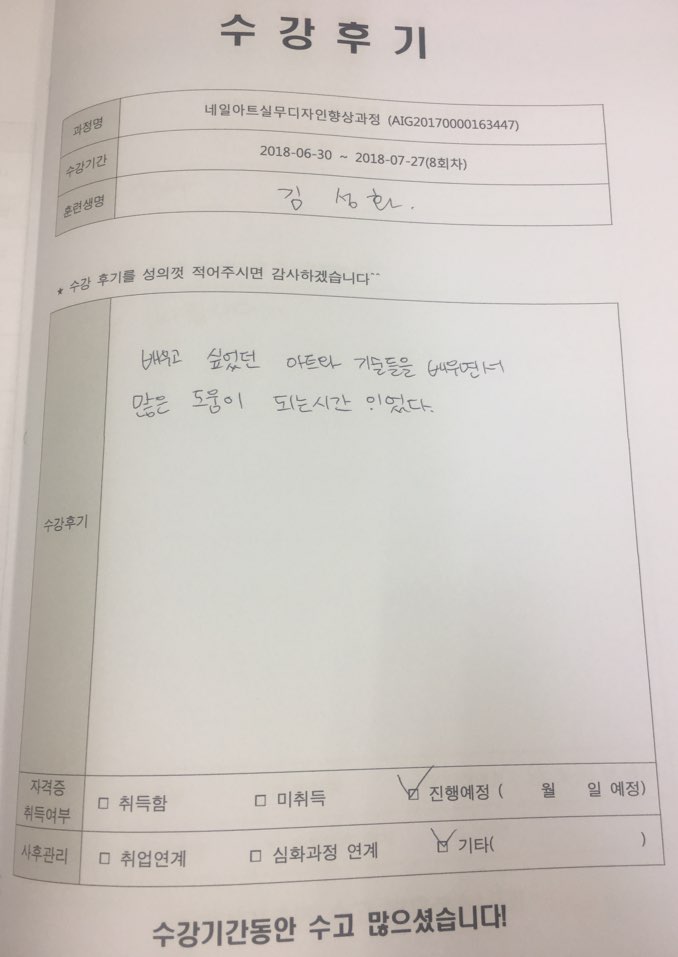 수강후기
과정명 네일아트실무디자인향상과정 (AIG20170000163447)
수강기간 2018-06-30 ~ 2018-07-27(8회차)
훈련생명 김 성화.
* 수강 후기를 성의껏 적어주시면 감사하겠습니다^^
배우고 싶었던 아트와 기술들을 배우면서
많은 도움이 되는시간 이었다.
수강후기
자격증
취득여부 □ 취득함 □ 미취득 ☑ 진행예정 ( 월 일 예정)
사후관리 □ 취업연계 □ 심화과정 연계 ☑ 기타( )
수강기간동안 수고 많으셨습니다!